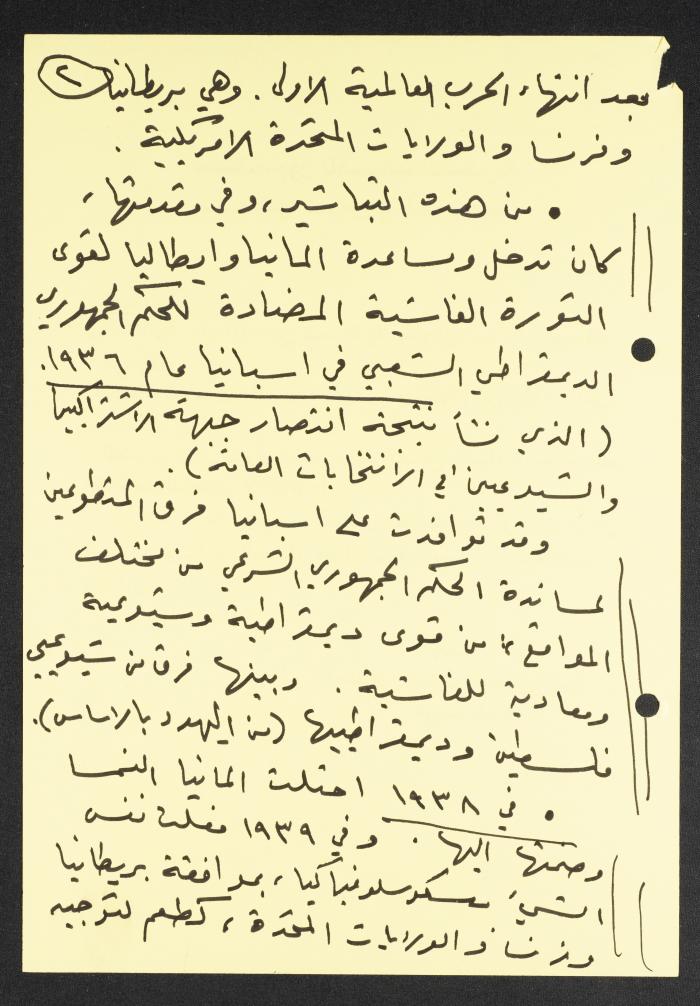 ٢
بعد انتهاء الحرب العالمية الاولى. وهي بريطانيا
وفرنسا والولايات المتحدة الامريكية.
• من هذه التباشير، وفي مقدمتها،
كان تدخل ومساعدة المانيا وايطاليا لقوى
الثورة الفاشية المضادة للحكم الجمهوري
الديمقراطي الشعبي في اسبانيا عام ١٩٣٦.
(الذي نشأ نتيجة انتصار جبهة الاشتراكيين
والشيوعيين في الانتخابات العامة).
وقد توافدت على اسبانيا فرق المتطوعين
لمساندة الحكم الجمهوري الشرعي من مختلف
المواقع، من قوى ديمقراطية وشيوعية
ومعادية للفاشية. وبينها فرق من شيوعيي
فلسطين وديمقراطييها (من اليهود بالاساس).
• في ١٩٣٨ احتلت المانيا النمسا
وضمتها اليها. وفي ١٩٣٩ فعلت نفس
الشيء بتشكوسلوفاكيا، بموافقة بريطانيا
وفرنسا والولايات المتحدة، كطعم لتوجيه